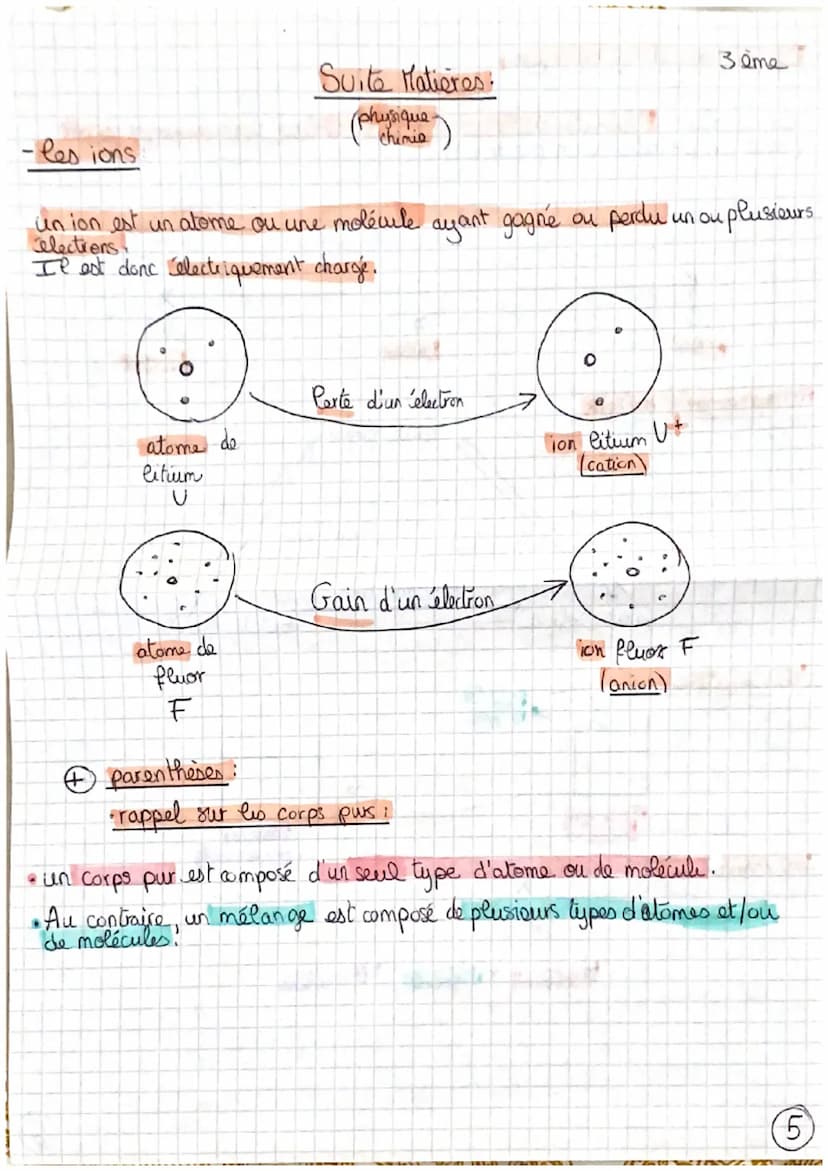 3 ème
Suite Matières.
(physique-
chimie)
- les ions
un ion est un atome ou une molécule ayant gagné ou perdu un ou plusieurs
électrons.
Il est donc électriquement chargé.
Perte d'un électron
atome de
litium
U
ion litium U+
(cation)
Gain d'un électron
atome de
fluor
F
ion fluor F
(anion)
+ parenthèses :
· rappel sur les corps purs :
• un corps pur est composé d'un seul type d'atome ou de molécule.
• Au contraire, un mélange est composé de plusieurs types d'atomes et/ou
de molécules.
5